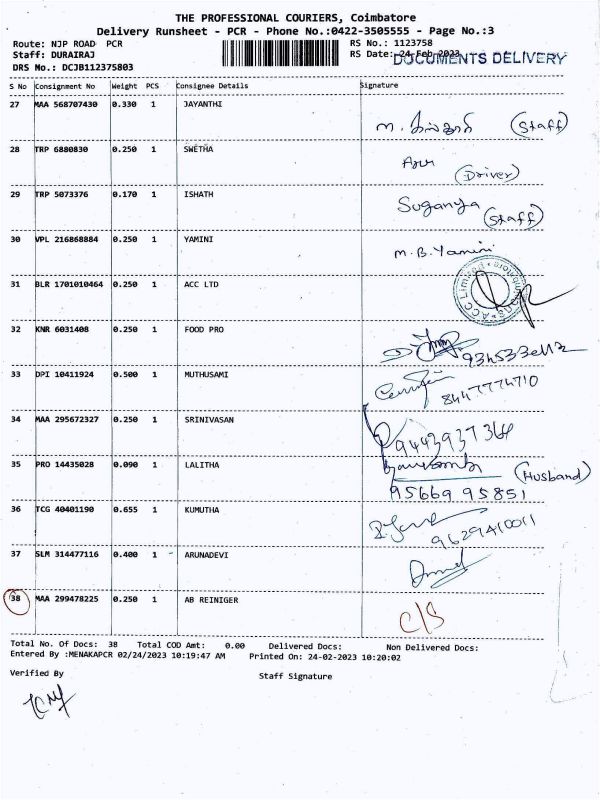 THE PROFESSIONAL COURIERS, Coimbatore
Delivery Runsheet - PCR - Phone No.:0422-3505555 - Page No.:3
Route: NJP ROAD PCR
Staff: DURAIRAJ
DRS No.: DCJB112375803
RS No.: 1123758
RS Date: 24-Feb-2023
DOCUMENTS DELIVERY
S No Consignment No Weight PCS Consignee Details Signature
27 MAA 568707430 0.330 1 JAYANTHI
(Staff)
28 TRP 6880830 0.250 1 SWETHA
(Driver)
29 TRP 5073376 0.170 1 ISHATH
Suganya (Staff)
30 VPL 216868884 0.250 1 YAMINI
M.B.Yamini
31 BLR 1701010464 0.250 1 ACC LTD
ACC Limited
32 KNR 6031408 0.250 1 FOOD PRO
33 DPI 10411924 0.500 1 MUTHUSAMI
8447774710
34 MAA 295672327 0.250 1 SRINIVASAN
9443937364
35 PRO 14435028 0.090 1 LALITHA
(Husband)
95669 95851
36 TCG 40401190 0.655 1 KUMUTHA
9629410011
37 SLM 314477116 0.400 1 ARUNADEVI
38 MAA 299478225 0.250 1 AB REINIGER
C/S
Total No. Of Docs: 38 Total COD Amt: 0.00 Delivered Docs: Non Delivered Docs:
Entered By :MENAKAPCR 02/24/2023 10:19:47 AM Printed On: 24-02-2023 10:20:02
Verified By
Staff Signature